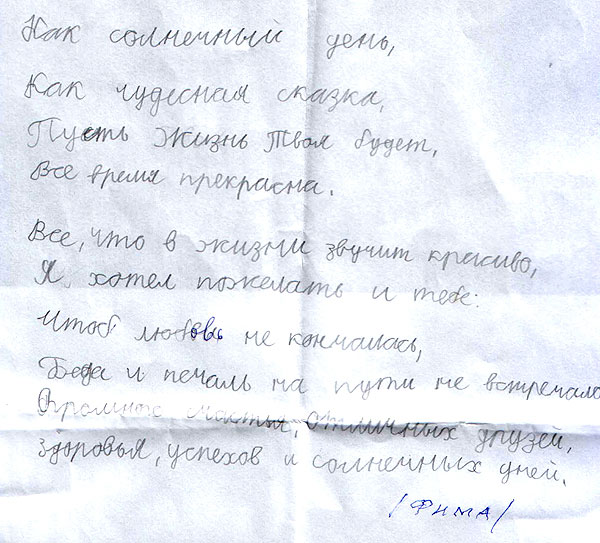 Как солнечный день,
Как чудесная сказка,
Пусть Жизнь Твоя будет,
Все время прекрасна.
Все, что в жизни звучит красиво,
Я, хотел пожелать и тебе:
Чтоб любовь не кончалась,
Беда и печаль на пути не встречала
Огромного счастья, отличных друзей,
здоровья, успехов и солнечных дней.
/Фима/